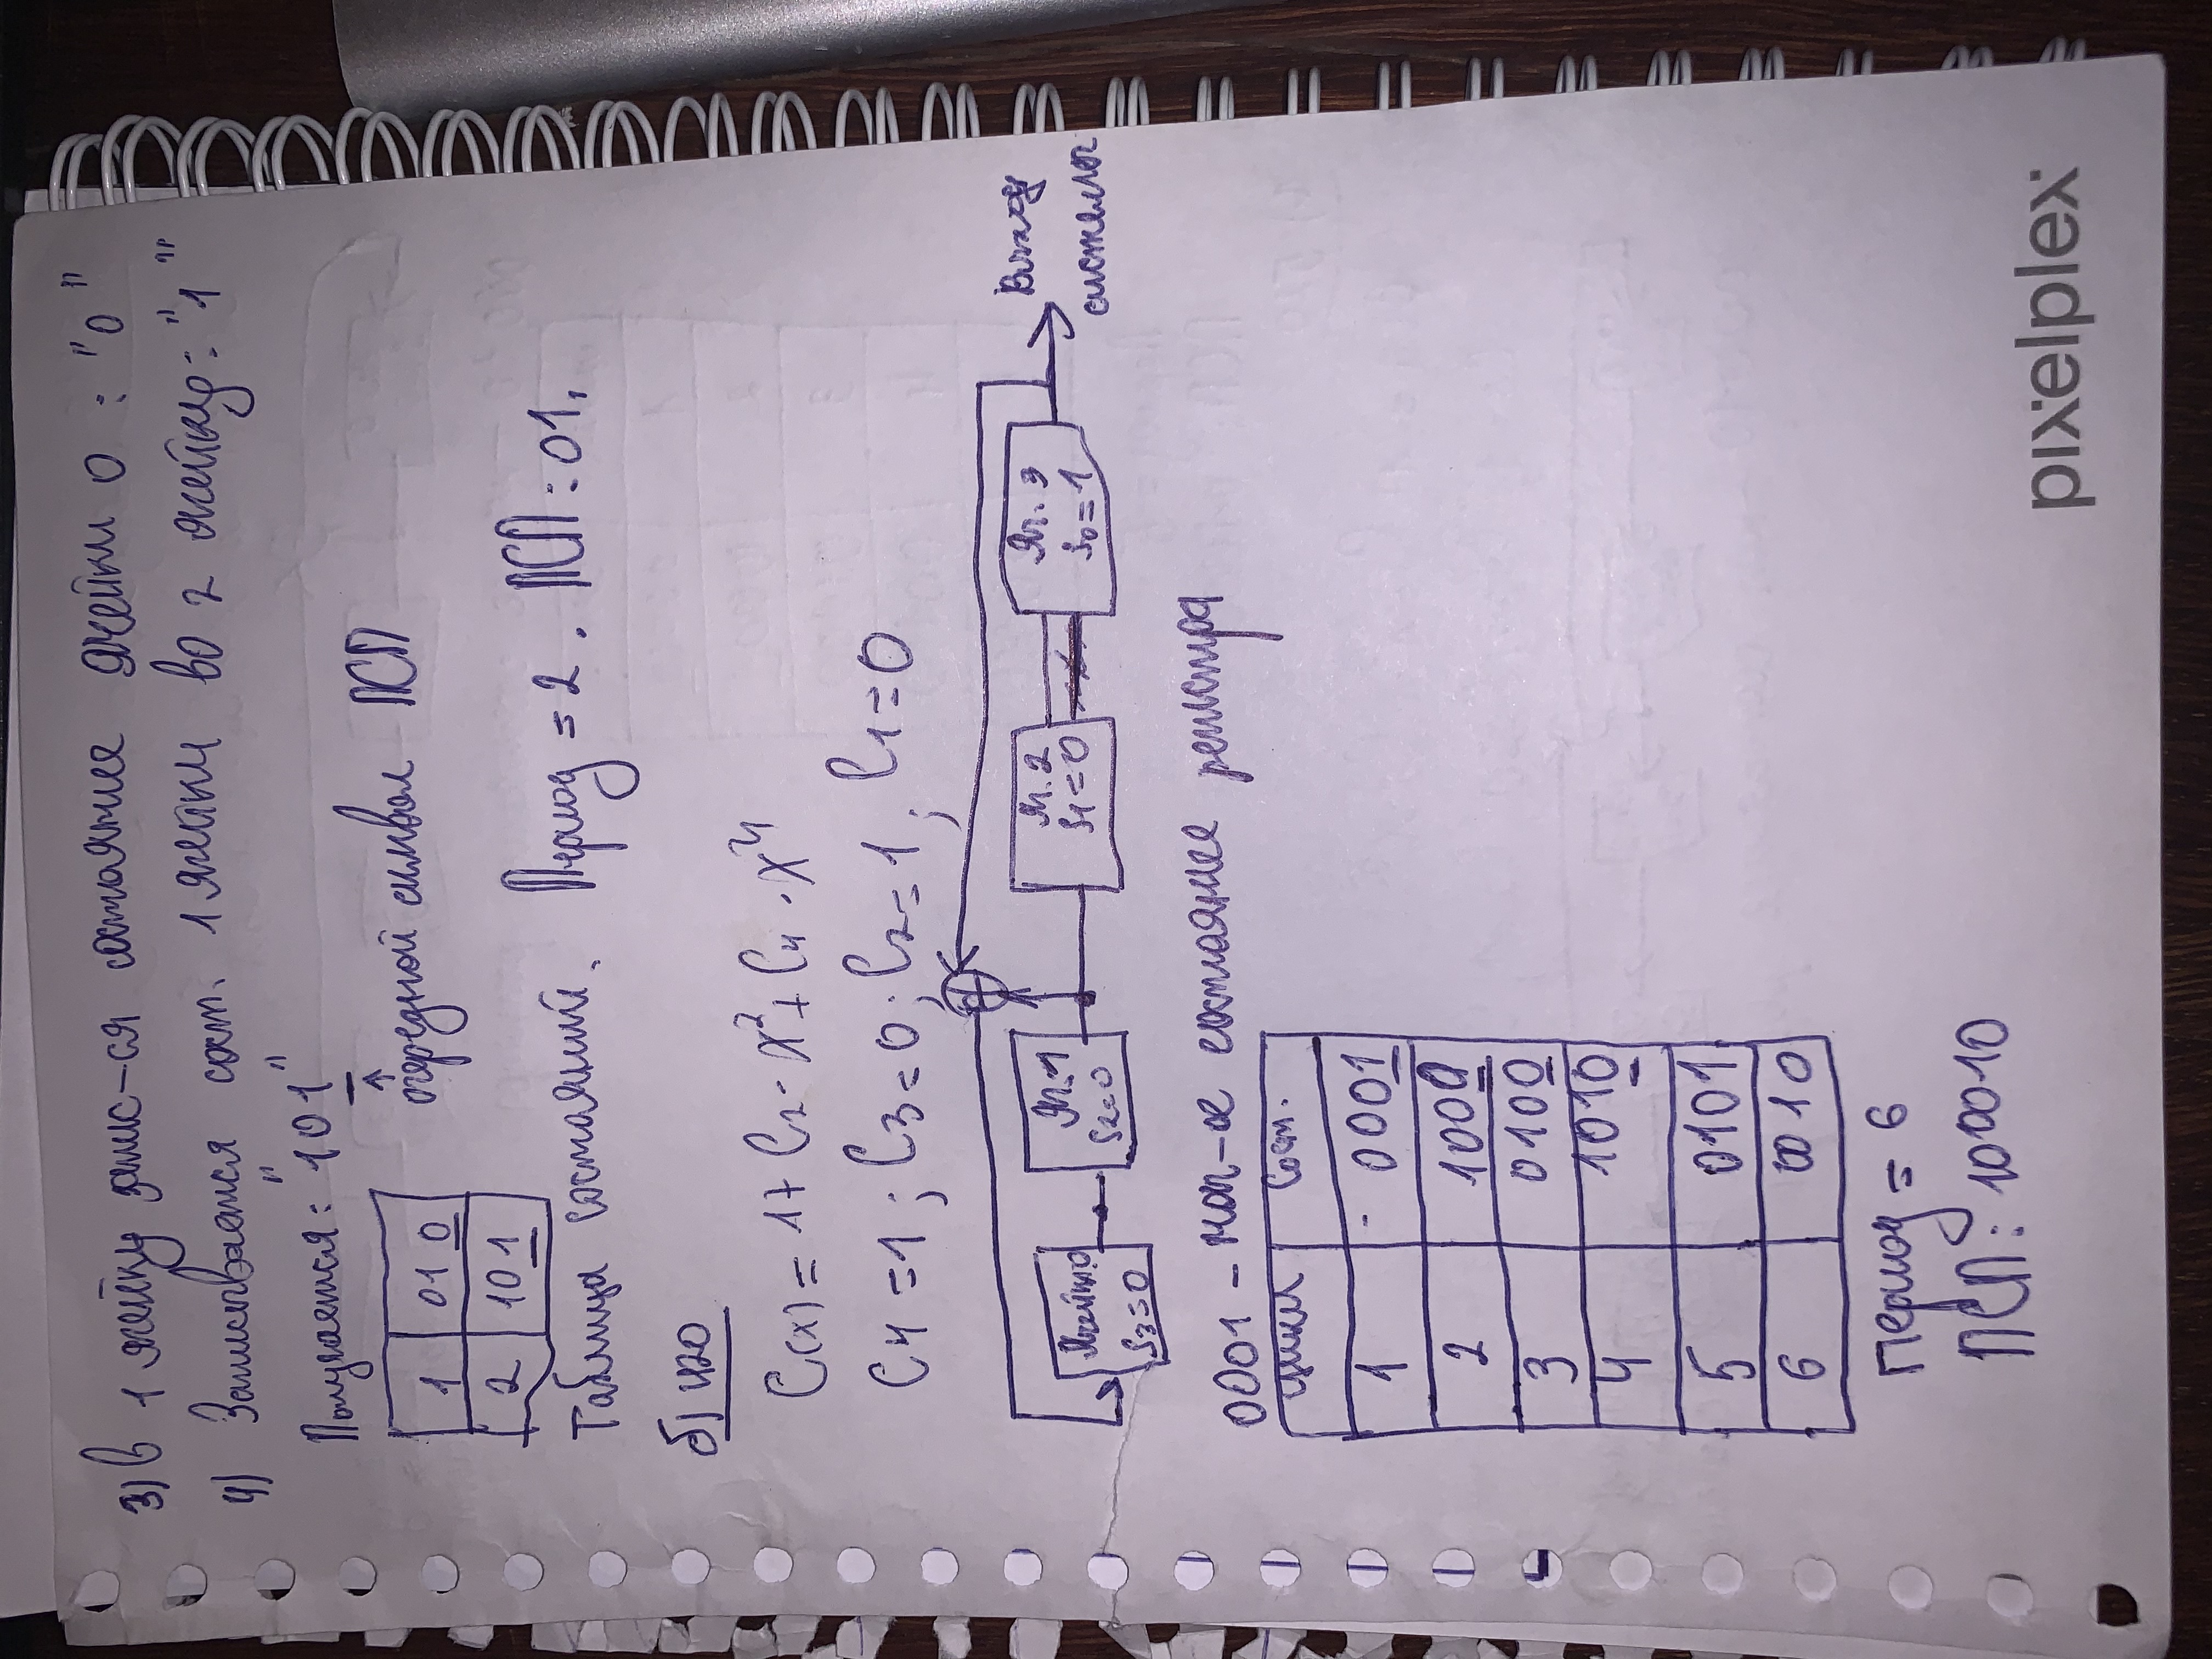 3) В 1 ячейку запис-ся состояние ячейки 0 : "0"
4) Записывается сост. 1 ячейки во 2 ячейку: "1"
Получается: "101"
очередной символ ПСП
1 010
2 101
Таблица состояний. Период = 2. ПСП: 01.
б) 420
C(x) = 1+ C2 · X² + C4 · X⁴
C4 = 1; C3 = 0; C2 = 1; C1 = 0
Ячейка 0 S3 = 0
Яч. 1 S2 = 0
Яч. 2 S1 = 0
Яч. 3 S0 = 1
Выход системы
0001 – нач-ое состояние регистра
Цикл Сост.
1 0001
2 1000
3 0100
4 1010
5 0101
6 0010
Период = 6
ПСП: 100010
pixelplex